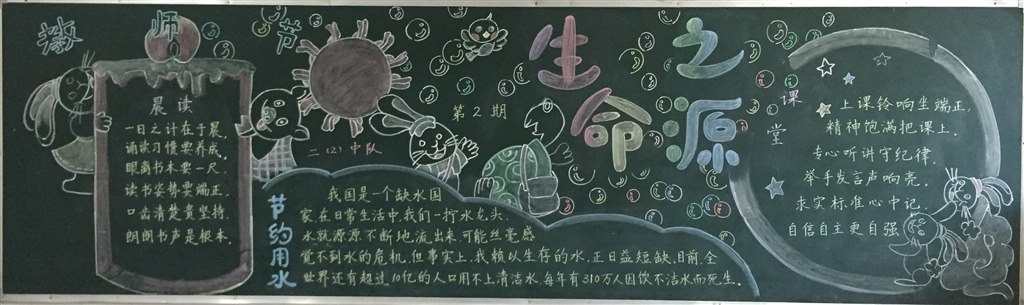 教师节
晨读
一日之计在于晨,
诵读习惯要养成,
眼离书本要一尺,
读书姿势要端正,
口齿清楚贵坚持,
朗朗书声是根本.
第2期
二(2)中队
生命之源
节约用水
我国是一个缺水国
家,在日常生活中,我们一拧水龙头,
水就源源不断地流出来,可能丝毫感
觉不到水的危机,但事实上,我赖以生存的水,正日益短缺.目前,全
世界还有超过10亿的人口用不上清洁水,每年有310万人因饮不洁水而死生.
课堂
上课铃响坐端正,
精神饱满把课上.
专心听讲守纪律,
举手发言声响亮.
求实标准心中记,
自信自主更自强.